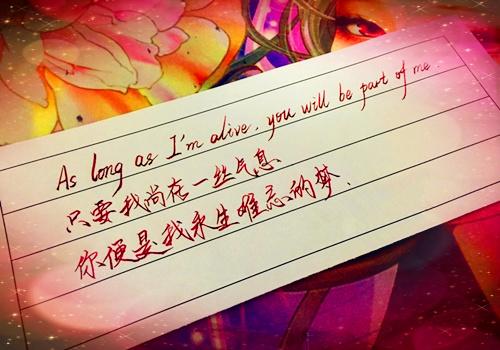 As long as I'm alive, you will be part of me.
只要我尚存一丝气息
你便是我永生难忘的梦.